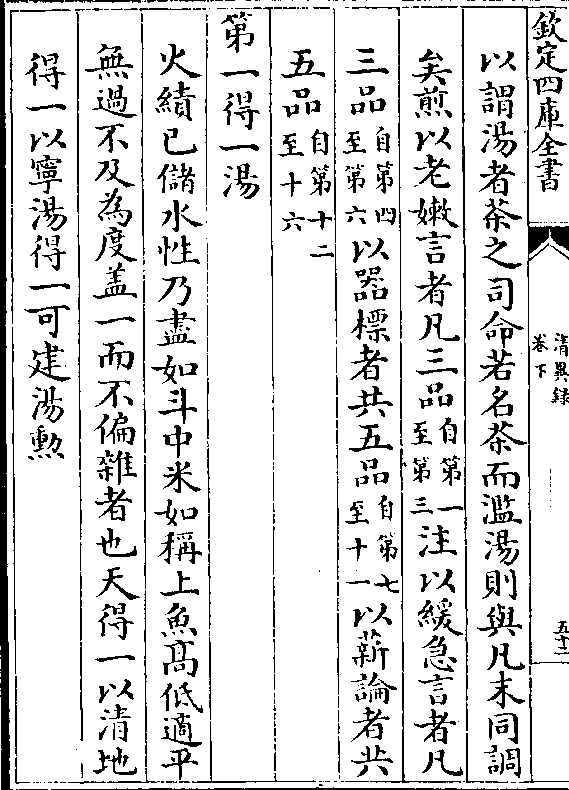 欽定四庫全書
清異録
卷下
五十二
以謂湯者茶之司命若名茶而濫湯則與凡末同調
矣煎以老嫩言者凡三品自第一至第三注以緩急言者凡
三品自第四至第六以器標者共五品自第七至十一以薪論者共
五品自第十二至十六
第一得一湯
火績已儲水性乃盡如斗中米如稱上魚髙低適平
無過不及為度盖一而不偏雜者也天得一以清地
得一以寧湯得一可建湯勲